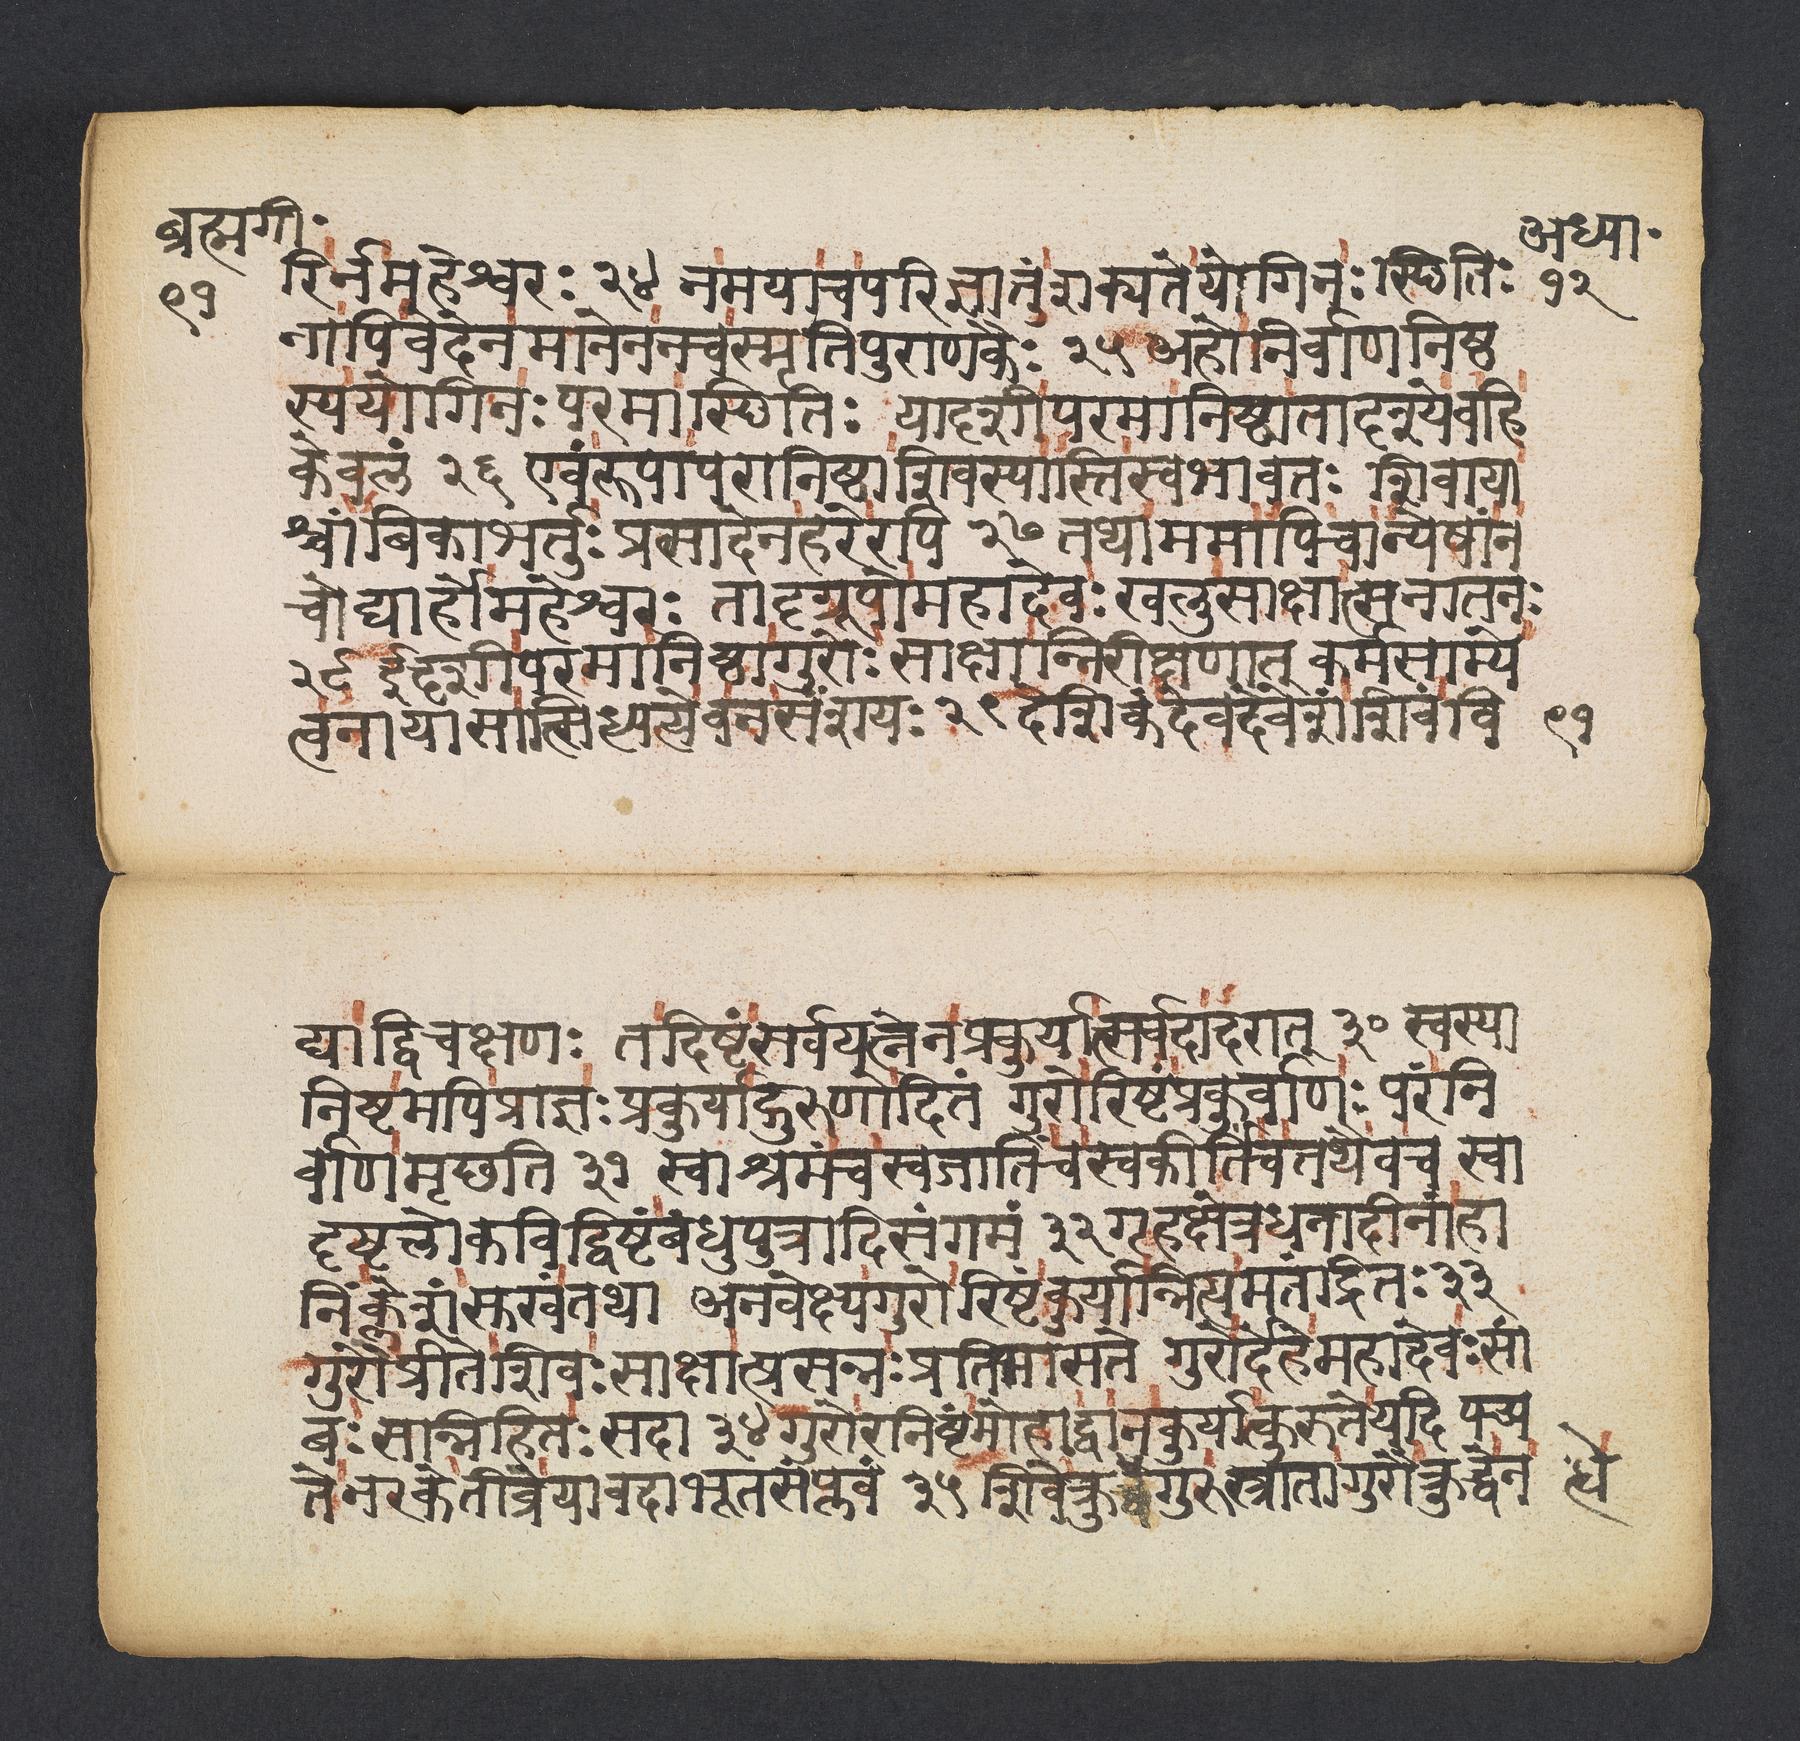 ब्रह्मगी॰
अध्या॰
९१
१२
रिर्नमहेश्वरः २४ नमयाचपरिज्ञातुंशक्यतेयोगिनःस्थितिः
नापिवेदेनमानेननचस्मृतिपुराणकैः २५ अहोनिर्वाणनिष्ठ
स्ययोगिनःपरमास्थितिः यादृशीपरमानिष्ठातादृश्येवहि
केवलं २६ एवंरूपापरानिष्ठाशिवस्यास्तिस्वभावतः शिवाया
श्चांबिकाभर्तुःप्रसादेनहरेरपि २७ तथाममापिचान्येषांन
चोद्यार्होमहेश्वरः तादृग्रूपोमहादेवःखलुसाक्षात्सनातनः
२८ ईदृशीपरमानिष्ठागुरोःसाक्षान्निरीक्षणात् कर्मसाम्ये
त्वनायासात्सिध्यत्येवनसंशयः २९ देशिकंदेवदेवेशंशिवंवि
९१
द्याद्विचक्षणः तदिष्टंसर्वयत्नेनप्रकुर्यात्सर्वदादरात् ३० स्वस्या
निष्टमपिप्राज्ञःप्रकुर्याद्गुरुणोदितं गुरोरिष्टंप्रकुर्वाणःपरंनि
र्वाणमृछति ३१ स्वाश्रमंचस्वजातिंचस्वकीर्तिंचतथैवच स्वा
दृष्टंलोकविद्विष्टंबंधुपुत्रादिसंगमं ३२ गृहक्षेत्रधनादीनांहा
निंक्लेशंसुखंतथा अनवेक्ष्यगुरोरिष्टंकुर्यान्नित्यमतंद्रितः३३
गुरौप्रीतेशिवःसाक्षात्प्रसन्नःप्रतिभासते गुरोर्देहेमहादेवःसां
बःसन्निहितःसदा ३४ गुरोरनिष्टंमोहाद्वानकुर्यात्कुरुतेयदि पच्य
तेनरकेतीव्रेयावदाभूतसंप्लवं ३५ शिवेक्रुद्धेगुरुस्त्रातागुरौक्रुद्धेन